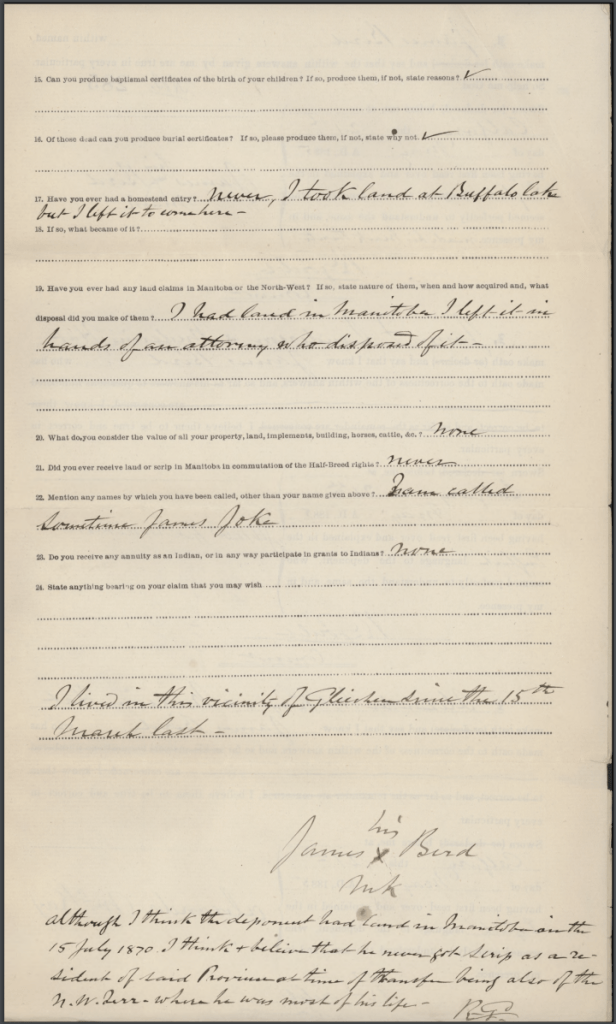 15. Can you produce baptismal certificates of the birth of your children? If so, produce them, if not, state reasons? ✓
16. Of those dead can you produce burial certificates? If so, please produce them, if not, state why not. ✓
17. Have you ever had a homestead entry? never, I took land at Buffalo lake
but I left it to come here -
18. If so, what became of it?
19. Have you ever had any land claims in Manitoba or the North-West? If so, state nature of them, when and how acquired and, what
disposal did you make of them? I had land in Manitoba I left it in
hands of an attorney who disposed of it -
20. What do you consider the value of all your property, land, implements, building, horses, cattle, &c.? none
21. Did you ever receive land or scrip in Manitoba in commutation of the Half-Breed rights? never
22. Mention any names by which you have been called, other than your name given above? I am called
sometime James Joke
23. Do you receive any annuity as an Indian, or in any way participate in grants to Indians? none
24. State anything bearing on your claim that you may wish
I lived in this vicinity of Gleichen since the 15th
March last -
his
James X Bird
mk
although I think the deponent had land in Manitoba on the
15 July 1870. I think & believe that he never got scrip as a re-
sident of said Province at time of transfer being also of the
N. W. Terr - where he was most of his life -